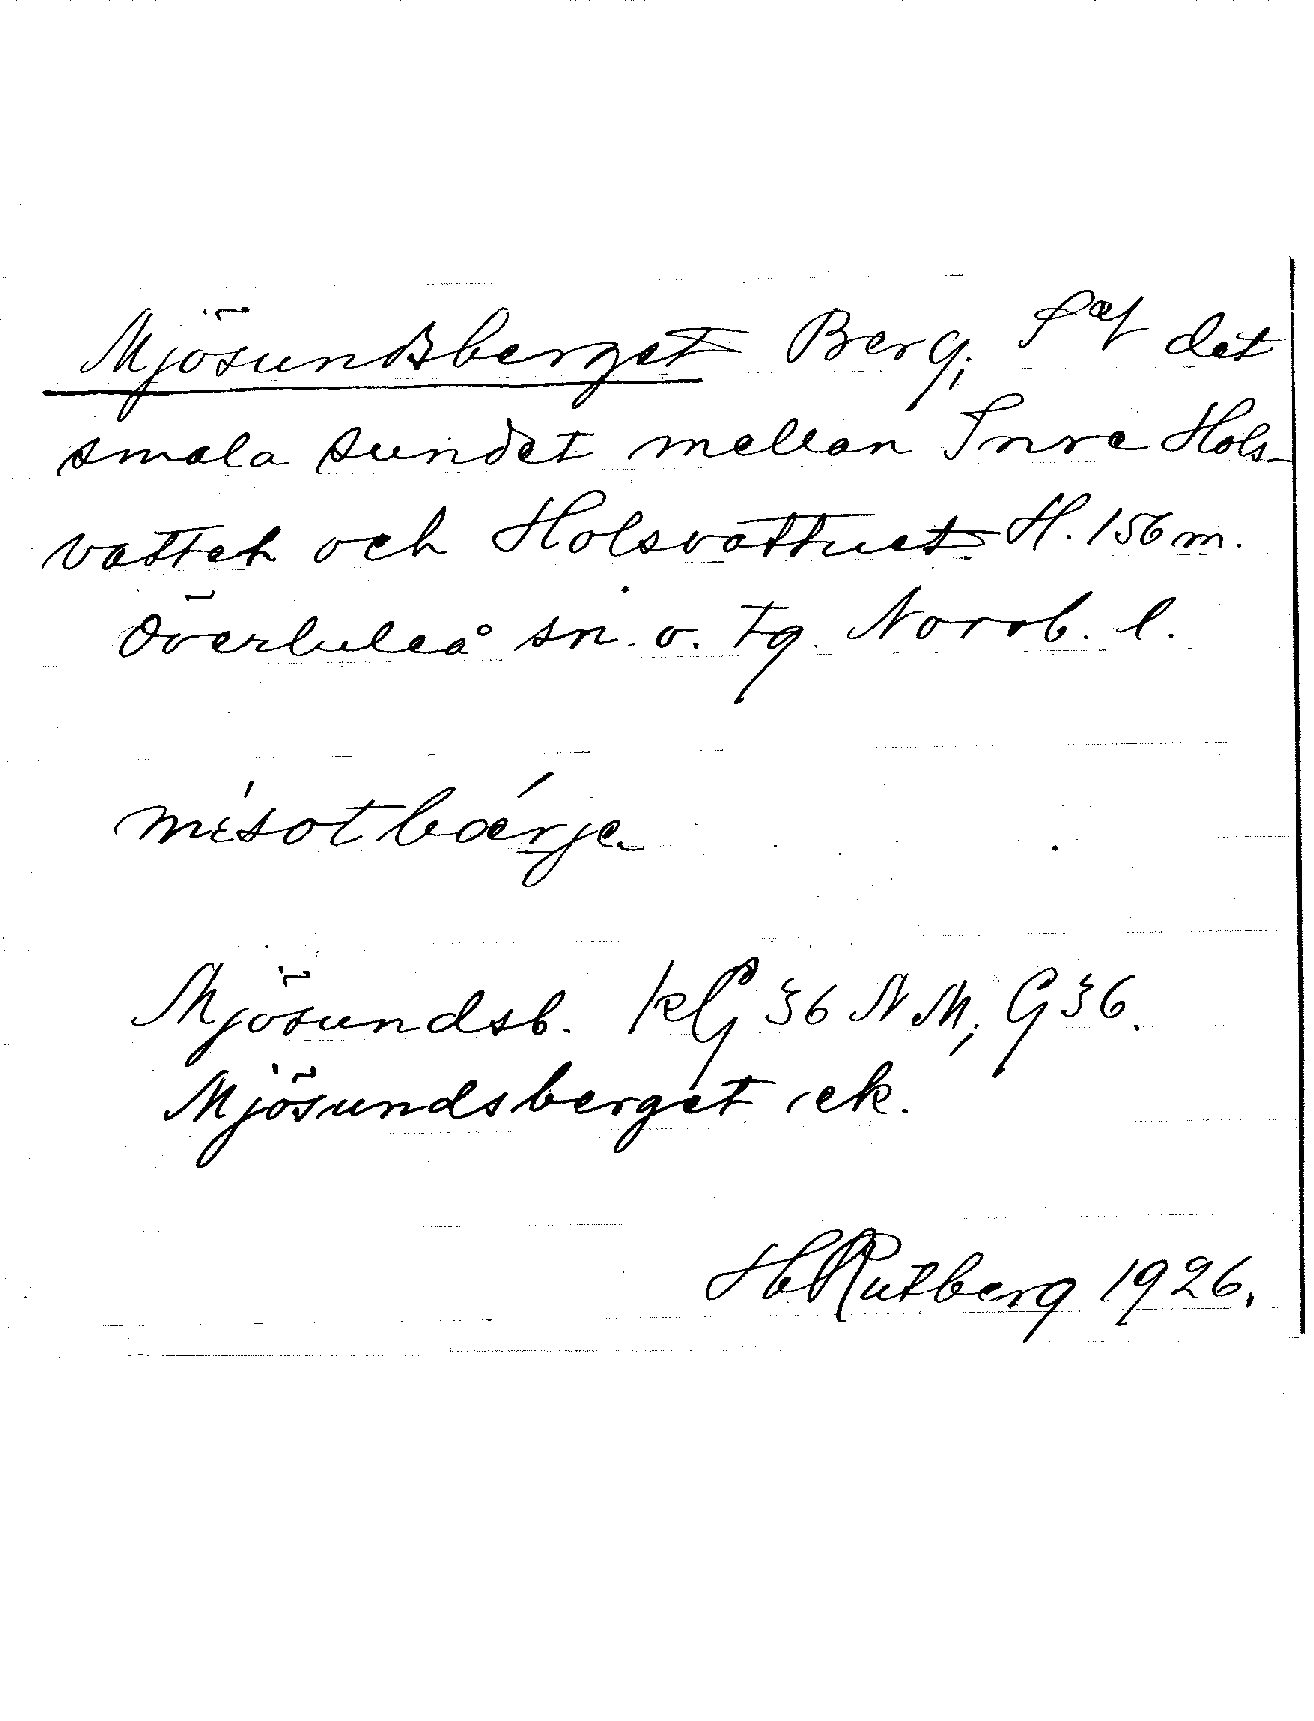 Mjösundsberget Berg; S af det
smala sundet mellan Inre Hols-
vattnet och Holsvattnet. H. 156 m.
Överluleå sn. o. tg. Norrb. l.
mísotbærje
Mjösundsb. kG §6 NM; G §6.
Mjösundsberget ek.
H Rutberg 1926.